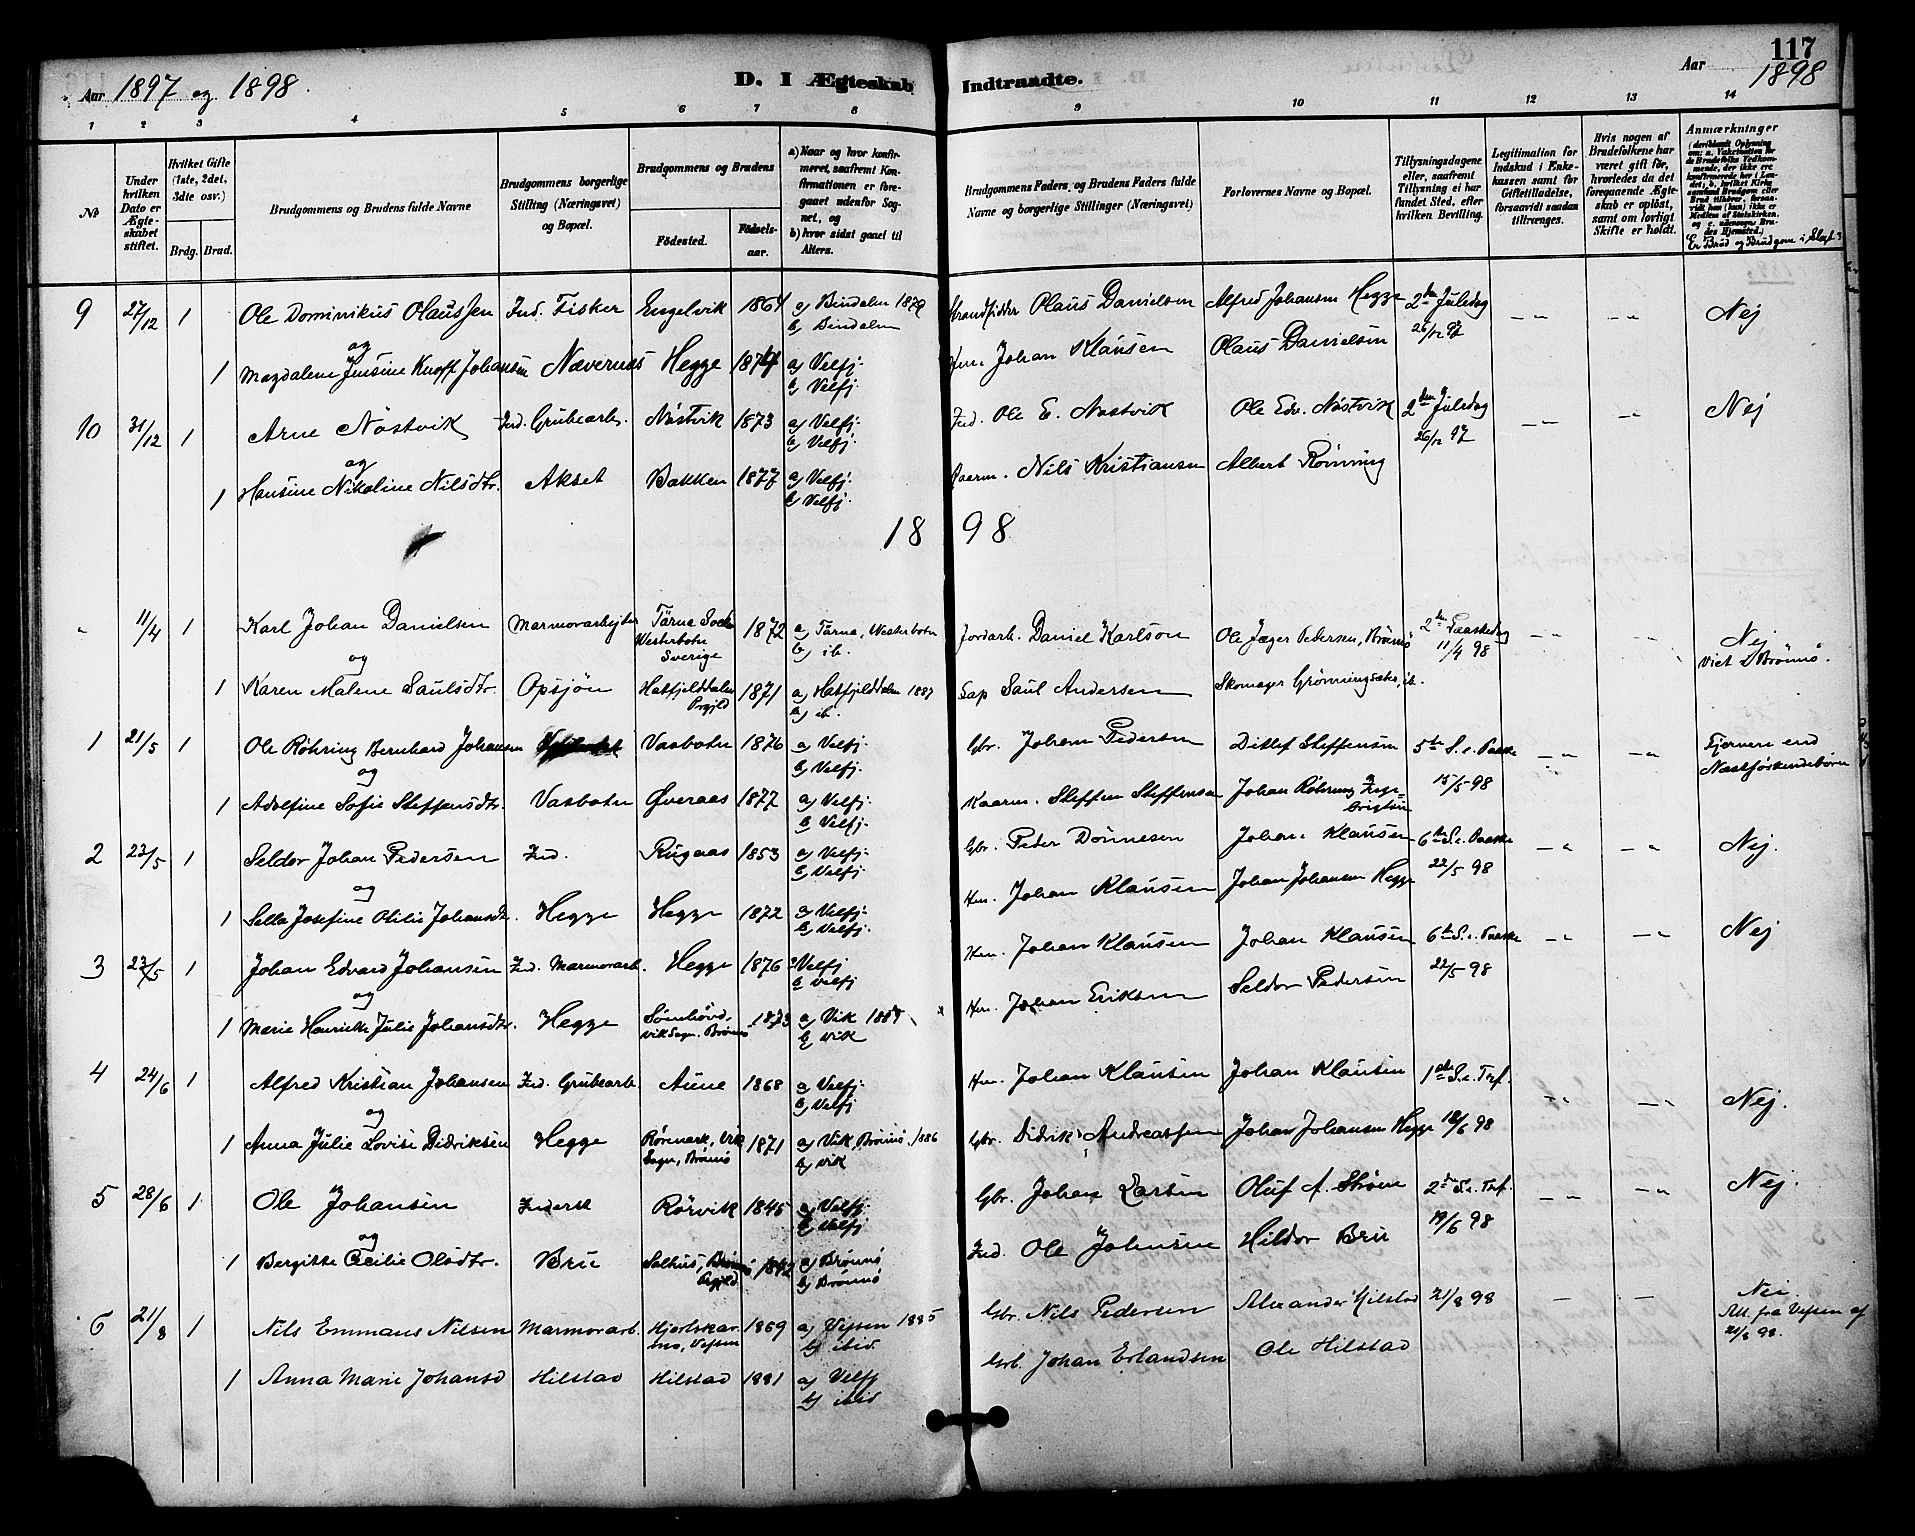 Aar 1897 og 1898. D. I Ægteskab Indtraadte. Aar 1898 117
1 2 3 4 5 6 7 8 9 10 11 12 13 14
№
Under hvilken Dato er Ægteskabet stiftet.
Hvilket Gifte (1ste, 2det, 3die osv.)
Brdg. Brud.
Brudgommens og Brudens fulde Navne
Brudgommens borgerlige Stilling (Næringsvei) og Bopæl.
Brudgommens og Brudens
Födested. Födselsaar.
a) Naar og hvor konfirmeret, saafremt Konfirmationen er foregaaet udenfor Sognet, og
b) hvor sidst gaaet til Alters.
Brudgommens Faders og Brudens Faders fulde Navne og borgerlige Stillinger (Næringsvei)
Forlovernes Navne og Bopæl.
Tillysningsdagene eller, saafremt Tillysning ei har fundet Sted, efter hvilken Bevilling.
Legitimation for Indskud i Enkekassen samt for Giftetilladelse, forsaavidt saadan tiltrænges.
Hvis nogen af Brudefolkene har været gift för, hvorledes da det foregaaende Ægteskab er oplöst, samt om lovligt Skifte er holdt.
Anmærkninger
Er Brud og Brudgom i Slægt?
9 27/12 1 Ole Dominikus Olaussen Ind. Fisker Engelvik 1864 a) Bindalen 1879 Strandsidder Olaus Danielsen Alfred Johansen Hegge 2den Juledag Nej
b) Bindalen 26/12 97
og
1 Magdalene Jensine Knoff Johansen Nævernes Hegge 1874 a) Velfj. Hm. Johan Klausen Olaus Danielsen
b) Velfj.
10 31/12 1 Arne Nöstvik Ind. Grubearb. Nöstvik 1873 a) Velfj. Ind. Ole E. Nöstvik Ole Edv. Nöstvik 2den Juledag Nej
b) Velfj. 26/12 97
og
1 Hansine Nikoline Nilsdtr. Akset Bakken 1877 a) Velfj. Kaarm. Nils Kristiansen Albert Rönning
b) Velfj.
1898
" 11/4 1 Karl Johan Danielsen Marmorarbejder Tärna Sockn 1872 a) Tärna, Westerbotn Jordarb. Daniel Karlson Ole Jæger Pedersen, Brönnö 2den Paaskedag Nej
Westerbotn Sverige b) ib. 11/4 98 Viet i Brönnö.
og
1 Karen Malene Saulsdtr. Opsjön Hatfjelddalen Prgjld 1871 a) Hatfjelddalen 1887 Lap Saul Andersen Skomager Grönningsæter, ib.
b) ib.
1 21/5 1 Ole Röhring Bernhard Johansen Vasbotn 1876 a) Velfj. Gbr. Johan Pedersen Ditlef Steffensen 5te S. e. Paaske Fjernere end
b) Velfj. 15/5 98 Næstsöskendebörn
og
1 Adolfine Sofie Steffensdtr. Vasbotn Överaas 1877 a) Velfj. Kaarm. Steffen Steffensen Johan Röhring Ingebrigtsen
b) Velfj.
2 23/5 1 Seldor Johan Pedersen Ind. Rugaas 1853 a) Velfj. Gbr. Peder Dönnesen Johan Klausen 6te S. e. Paaske Nej.
b) Velfj. 22/5 98
og
1 Sella Josefine Otilie Johansdtr. Hegge Hegge 1872 a) Velfj. Hm. Johan Klausen Johan Johansen Hegge
b) Velfj.
3 23/5 1 Johan Edvard Johansen Ind. Marmorarb. Hegge 1876 a) Velfj Hm. Johan Klausen Johan Klausen 6te S. e. Paaske Nej
b) Velfj 22/5 98
og
1 Marie Henrikke Julie Johansdtr. Hegge Sömhövd, Vik Sogn. Brönnö 1873 a) Vik 1887 Hm. Johan Eriksen Seldor Pedersen
b) Vik
4 24/6 1 Alfred Kristian Johansen Ind. Grubearb Aune 1868 a) Velfj. Hm. Johan Klausen Johan Klausen 1ste S. e. Tref. Nej.
b) Velfj
og
1 Anna Julie Lovise Didriksen Hegge Rörmark, Vik Sogn, Brönnö 1871 a) Vik, Brönnö 1886 Gbr. Didrik Andreassen Johan Johansen Hegge 12/6 98
b) Vik
5 28/6 1 Ole Johansen Inderst Rörvik 1845 a) Velfj. Gbr. Johan Larsen Oluf A. Ström 2den S. e. Tref. Nej.
b) Velfj 19/6 98
og
1 Bergitte Cecilie Olsdtr. Bru Salhus, Brönnö Prgjld 1842 a) Brönnö Ind. Ole Johnsen Hildor Bru
b) Brönnö
6 21/8 1 Nils Emmaus Nilsen Marmorarb Hjortskarmo, Vefsen 1869 a) Vefsen 1885 Gbr. Nils Pedersen Alexander Hilstad 21/8 98 Nei.
b) ibid. Att. fra Vefsen af 21/8 98.
1 Anna Marie Johansd Hilstad Hilstad 1881 a) Velfj Grb. Johan Erlandsen Ole Hilstad
b) ibid